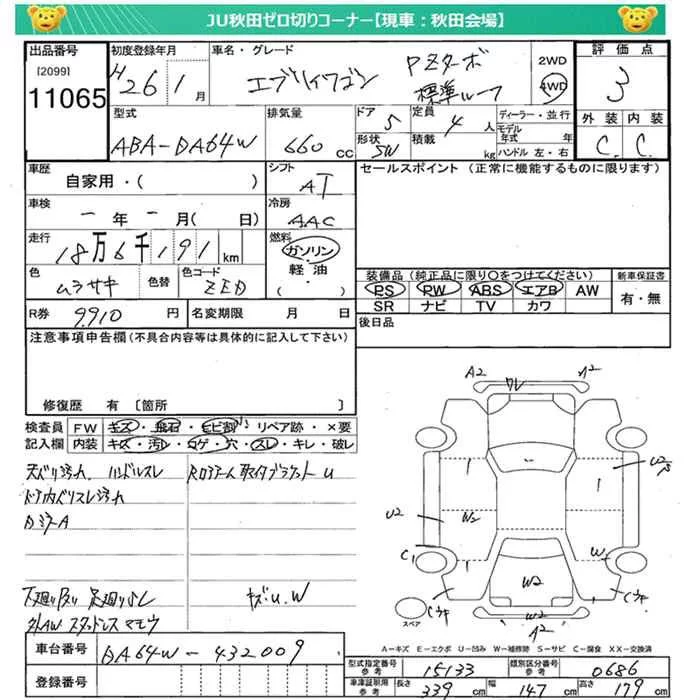 JU秋田ゼロ切りコーナー【現車：秋田会場】
出品番号
[2099]
11065
初度登録年月
H26 1月
車名・グレード
エブリイワゴン
PZターボ
標準ルーフ
2WD
4WD
評価点
3
外装 内装
C C
型式
ABA-DA64W
排気量
660 cc
ドア 5
形状 SW
定員 4人
積載 kg
ディーラー・並行
モデル年式 年
ハンドル 左・右
車歴
自家用・( )
シフト
AT
セールスポイント (正常に機能するものに限ります)
車検
ー年ー月( 日)
冷房
AAC
走行
18万6千191km
燃料
ガソリン
軽油
( )
色
ムラサキ
色替
色コード
ZED
装備品 (純正品に限り○をつけてください)
PS PW ABS エアB AW
SR ナビ TV カワ
新車保証書
有・無
R券 9,910円
名変期限 月 日
後日品
注意事項申告欄(不具合内容等は具体的に記入して下さい)
修復歴 有 〔箇所 〕
検査員記入欄
FW キズ・飛石・ヒビ割・リペア跡・×要
内装 キズ・汚レ・コゲ・穴・スレ・キレ・破レ
天バリ汚れ ハンドルスレ
ドア内バリスレ汚れ
外AW スタッドレス マモウ
キズ U.W
A2
ワレ
A2
U2
W2
C1
W
W2
W2
A2
スペア
A-キズ E-エクボ U-凹み W-補修跡 S-サビ C-腐食 XX-交換済
車台番号
DA64W-432009
登録番号
型式指定番号 参考 15133
類別区分番号 参考 0686
車庫証明用 参考 長さ 339cm 幅 147cm 高さ 179cm